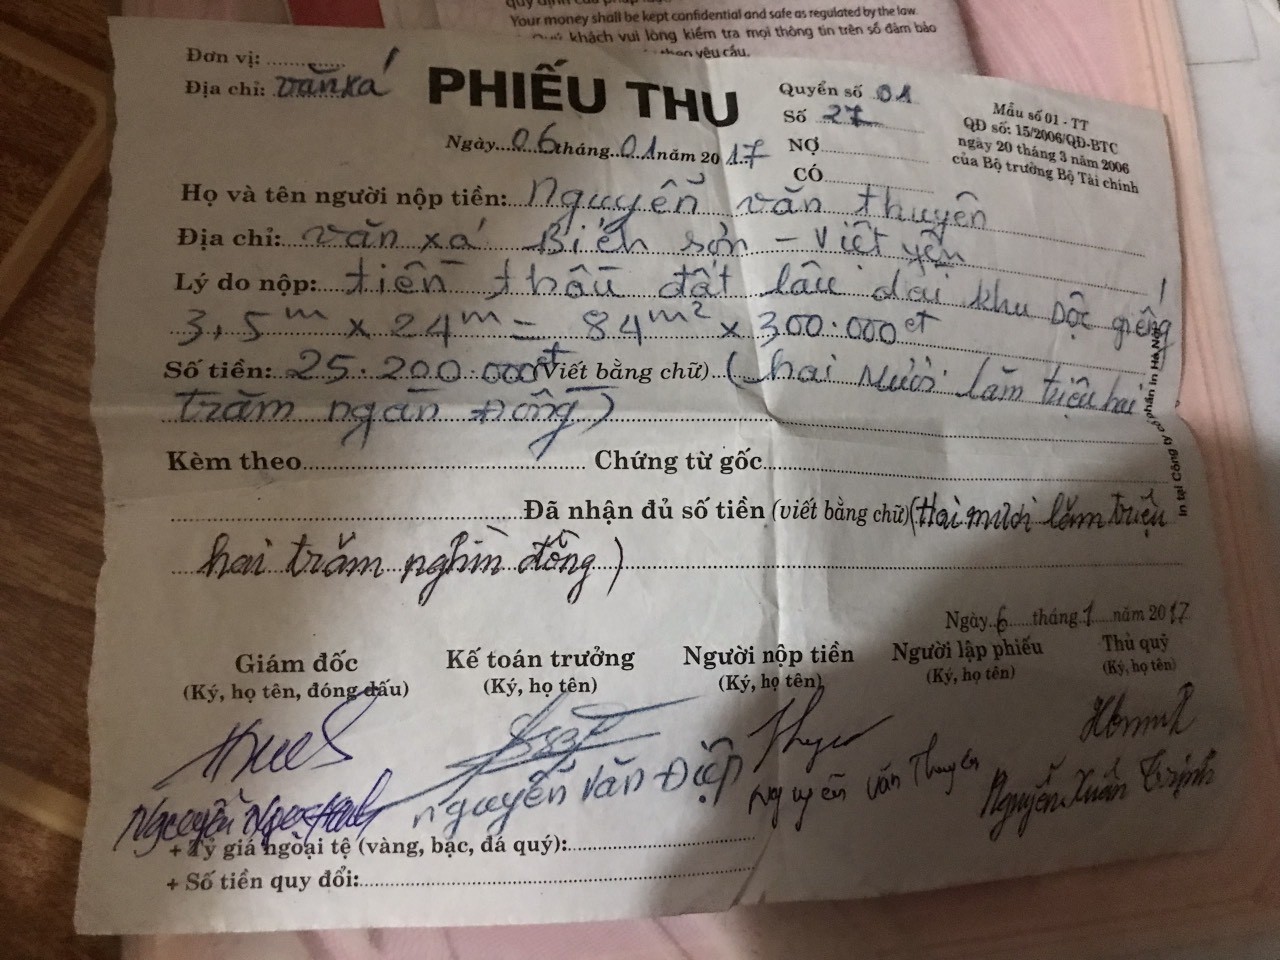 quy định của pháp luật
Your money shall be kept confidential and safe as regulated by the law.
khách vui lòng kiểm tra mọi thông tin trên sổ đảm bảo
yêu cầu.
Đơn vị:
Địa chỉ: văn xá
PHIẾU THU
Quyển số 01
Số 27
NỢ
CÓ
Mẫu số 01 - TT
QĐ số: 15/2006/QĐ-BTC
ngày 20 tháng 3 năm 2006
của Bộ trưởng Bộ Tài chính
Ngày 06 tháng 01 năm 2017
Họ và tên người nộp tiền: Nguyễn văn thuyên
Địa chỉ: văn xá Biển sơn - Việt yên
Lý do nộp: tiền thầu đất lâu dài khu Dộc giếng
3,5m x 24m = 84m² x 300.000đ
Số tiền: 25.200.000đ (Viết bằng chữ) (hai mươi lăm triệu hai
trăm ngàn Đồng)
Kèm theo Chứng từ gốc
Đã nhận đủ số tiền (viết bằng chữ) (Hai mươi lăm triệu
hai trăm nghìn đồng)
In tại Công ty cổ phần in Hà Nội
Ngày 6 tháng 1 năm 2017
Giám đốc
(Ký, họ tên, đóng dấu)
Kế toán trưởng
(Ký, họ tên)
Người nộp tiền
(Ký, họ tên)
Người lập phiếu
(Ký, họ tên)
Thủ quỹ
(Ký, họ tên)
Nguyễn Ngọc
Nguyễn Văn Điệp
Nguyễn Văn Thuyên
Nguyễn Xuân Trịnh
+ Tỷ giá ngoại tệ (vàng, bạc, đá quý):
+ Số tiền quy đổi: